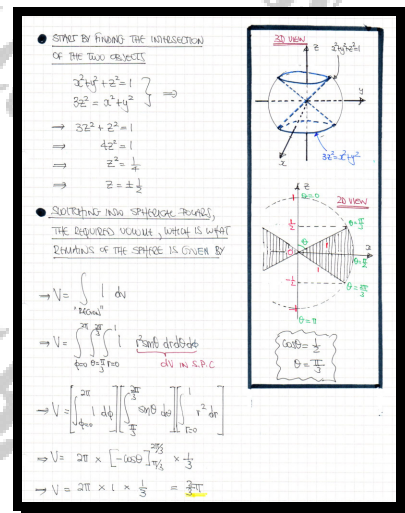 START BY FINDING THE INTERSECTION
OF THE TWO OBJECTS
x²+y²+z²=1
3z² = x²+y²
} ⇒
⇒ 3z² + z² = 1
⇒ 4z² = 1
⇒ z² = 1/4
⇒ z = ± 1/2
SWITCHING INTO SPHERICAL POLARS,
THE REQUIRED VOLUME, WHICH IS WHAT
REMAINS OF THE SPHERE IS GIVEN BY
⇒ V = ∫ 1 dv
"REGION"
⇒ V = ∫_{φ=0}^{2π} ∫_{θ=π/3}^{2π/3} ∫_{r=0}^{1} r² sinθ dr dθ dφ
dV IN S.P.C
⇒ V = [∫_{φ=0}^{2π} 1 dφ] [∫_{π/3}^{2π/3} sinθ dθ] [∫_{r=0}^{1} r² dr]
⇒ V = 2π × [-cosθ]_{π/3}^{2π/3} × 1/3
⇒ V = 2π × 1 × 1/3 = 2/3 π
3D VIEW
z
x²+y²+z²=1
y
x
3z²=x²+y²
z
2D VIEW
1
θ=0
1/2
θ=π/3
θ
1
x
0
θ=π/2
1
-1/2
θ=2π/3
-1
θ=π
cosθ = 1/2
θ = π/3